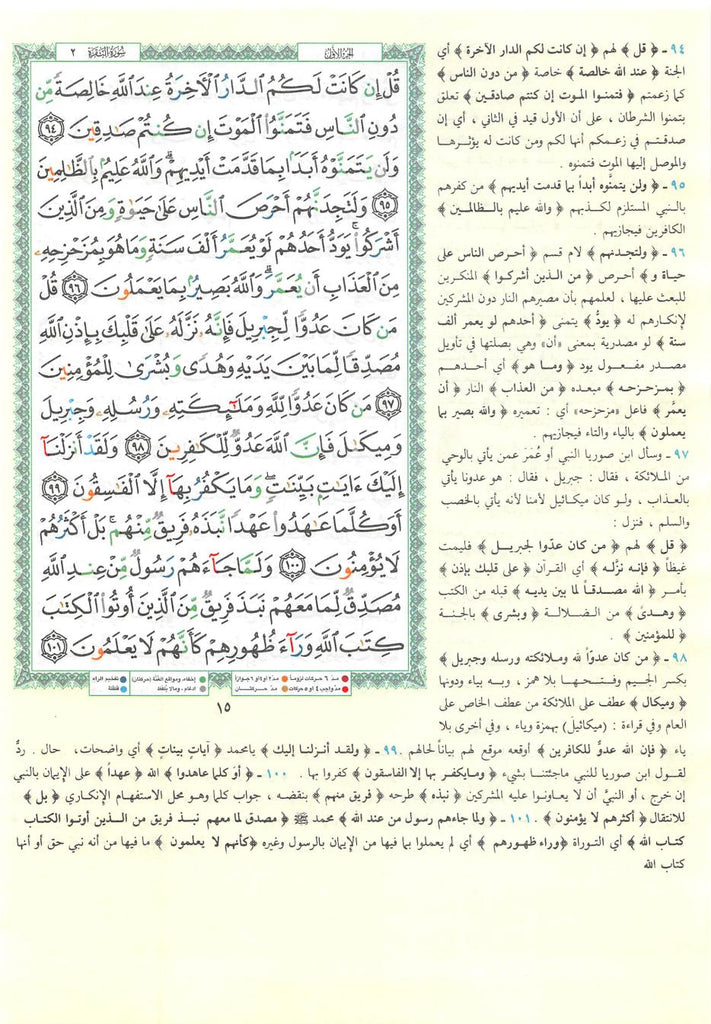 الجزء الأول
سورة البقرة ٢
قُلْ إِن كَانَتْ لَكُمُ الدَّارُ الْآخِرَةُ عِندَ اللَّهِ خَالِصَةً مِّن
دُونِ النَّاسِ فَتَمَنَّوُا الْمَوْتَ إِن كُنتُمْ صَادِقِينَ ٩٤
وَلَن يَتَمَنَّوْهُ أَبَدًا بِمَا قَدَّمَتْ أَيْدِيهِمْ وَاللَّهُ عَلِيمٌ بِالظَّالِمِينَ
٩٥ وَلَتَجِدَنَّهُمْ أَحْرَصَ النَّاسِ عَلَىٰ حَيَوٰةٍ وَمِنَ الَّذِينَ
أَشْرَكُوا يَوَدُّ أَحَدُهُمْ لَوْ يُعَمَّرُ أَلْفَ سَنَةٍ وَمَا هُوَ بِمُزَحْزِحِهِ
مِنَ الْعَذَابِ أَن يُعَمَّرَ وَاللَّهُ بَصِيرٌ بِمَا يَعْمَلُونَ ٩٦ قُلْ
مَن كَانَ عَدُوًّا لِّجِبْرِيلَ فَإِنَّهُ نَزَّلَهُ عَلَىٰ قَلْبِكَ بِإِذْنِ اللَّهِ
مُصَدِّقًا لِّمَا بَيْنَ يَدَيْهِ وَهُدًى وَبُشْرَىٰ لِلْمُؤْمِنِينَ
٩٧ مَن كَانَ عَدُوًّا لِّلَّهِ وَمَلَٰٓئِكَتِهِ وَرُسُلِهِ وَجِبْرِيلَ
وَمِيكَىٰلَ فَإِنَّ اللَّهَ عَدُوٌّ لِّلْكَافِرِينَ ٩٨ وَلَقَدْ أَنزَلْنَآ
إِلَيْكَ ءَايَٰتٍ بَيِّنَٰتٍ وَمَا يَكْفُرُ بِهَآ إِلَّا الْفَاسِقُونَ ٩٩
أَوَكُلَّمَا عَٰهَدُوا عَهْدًا نَّبَذَهُ فَرِيقٌ مِّنْهُم بَلْ أَكْثَرُهُمْ
لَا يُؤْمِنُونَ ١٠٠ وَلَمَّا جَآءَهُمْ رَسُولٌ مِّنْ عِندِ اللَّهِ
مُصَدِّقٌ لِّمَا مَعَهُمْ نَبَذَ فَرِيقٌ مِّنَ الَّذِينَ أُوتُوا الْكِتَٰبَ
كِتَٰبَ اللَّهِ وَرَآءَ ظُهُورِهِمْ كَأَنَّهُمْ لَا يَعْلَمُونَ ١٠١
مدّ ٦ حركات لزوماً مدّ ٢ أو ٤ أو ٦ جوازاً إخفاء، ومواقع الغُنَّة (حركتان) تفخيم الراء
مدّ واجب ٤ أو ٥ حركات مدّ حركتان إدغام، وما لا يُلفَظ قلقلة
١٥
٩٤ ـ ﴿ قل ﴾ لهم ﴿ إن كانت لكم الدار الآخرة ﴾ أي
الجنة ﴿ عند الله خالصة ﴾ خاصة ﴿ من دون الناس ﴾
كما زعمتم ﴿ فتمنوا الموت إن كنتم صادقين ﴾ تعلق
بتمنوا الشرطان ، على أن الأول قيد في الثاني ، أي إن
صدقتم في زعمكم أنها لكم ومن كانت له يؤثرها
والموصل إليها الموت فتمنوه .
٩٥ ـ ﴿ ولن يتمنّوه أبداً بما قدمت أيديهم ﴾ من كفرهم
بالنبي المستلزم لكذبهم ﴿ والله عليم بالظالمين ﴾
الكافرين فيجازيهم .
٩٦ ـ ﴿ ولتجدنهم ﴾ لام قسم ﴿ أحرص الناس على
حياة و ﴾ أحرص ﴿ من الذين أشركوا ﴾ المنكرين
للبعث عليها ، لعلمهم بأن مصيرهم النار دون المشركين
لإنكارهم له ﴿ يودُّ ﴾ يتمنى ﴿ أحدهم لو يعمر ألف
سنة ﴾ لو مصدرية بمعنى «أن» وهي بصلتها في تأويل
مصدر مفعول يود ﴿ وما هو ﴾ أي أحدهم
﴿ بمزحزحه ﴾ مبعده ﴿ من العذاب ﴾ النار ﴿ أن
يعمَّر ﴾ فاعل «مزحزحه» أي : تعميره ﴿ والله بصير بما
يعملون ﴾ بالياء والتاء فيجازيهم .
٩٧ ـ وسأل ابن صوريا النبي أو عُمَرَ عمن يأتي بالوحي
من الملائكة ، فقال : جبريل ، فقال : هو عدونا يأتي
بالعذاب ، ولو كان ميكائيل لآمنا لأنه يأتي بالخصب
والسلم ، فنزل :
﴿ قل ﴾ لهم ﴿ من كان عدّوا لجبريل ﴾ فليمت
غيظاً ﴿ فإنه نزّله ﴾ أي القرآن ﴿ على قلبك بإذن ﴾
بأمر ﴿ الله مصدقاً لما بين يديه ﴾ قبله من الكتب
﴿ وهدىً ﴾ من الضلالة ﴿ وبشرى ﴾ بالجنة
﴿ للمؤمنين ﴾ .
٩٨ ـ ﴿ من كان عدوّاً لله وملائكته ورسله وجبريل ﴾
بكسر الجيم وفتحها بلا همز ، وبه بياء ودونها
﴿ وميكال ﴾ عطف على الملائكة من عطف الخاص على
العام وفي قراءة : (ميكائيلَ) بهمزة وياء ، وفي أخرى بلا
ياء ﴿ فإن الله عدوٌّ للكافرين ﴾ أوقعه موقع لهم بياناً لحالهم . ٩٩ ـ ﴿ ولقد أنزلنا إليك ﴾ يامحمد ﴿ آياتٍ بيناتٍ ﴾ أي واضحات، حال . ردٌّ
لقول ابن صوريا للنبي ماجئتنا بشيء ﴿ ومايكفر بها إلا الفاسقون ﴾ كفروا بها . ١٠٠ ـ ﴿ أو كلما عاهدوا ﴾ الله ﴿ عهداً ﴾ على الإيمان بالنبي
إن خرج ، أو النبيَّ أن لا يعاونوا عليه المشركين ﴿ نبذه ﴾ طرحه ﴿ فريق منهم ﴾ بنقضه ، جواب كلما وهو محل الاستفهام الإنكاري ﴿ بل ﴾
للانتقال ﴿ أكثرهم لا يؤمنون ﴾ . ١٠١ ـ ﴿ ولما جاءهم رسول من عند الله ﴾ محمد ﷺ ﴿ مصدق لما معهم نبذ فريق من الذين أوتوا الكتاب
كتاب الله ﴾ أي التوراة ﴿وراء ظهورهم ﴾ أي لم يعملوا بما فيها من الإيمان بالرسول وغيره ﴿كأنهم لا يعلمون ﴾ ما فيها من أنه نبي حق أو أنها
كتاب الله